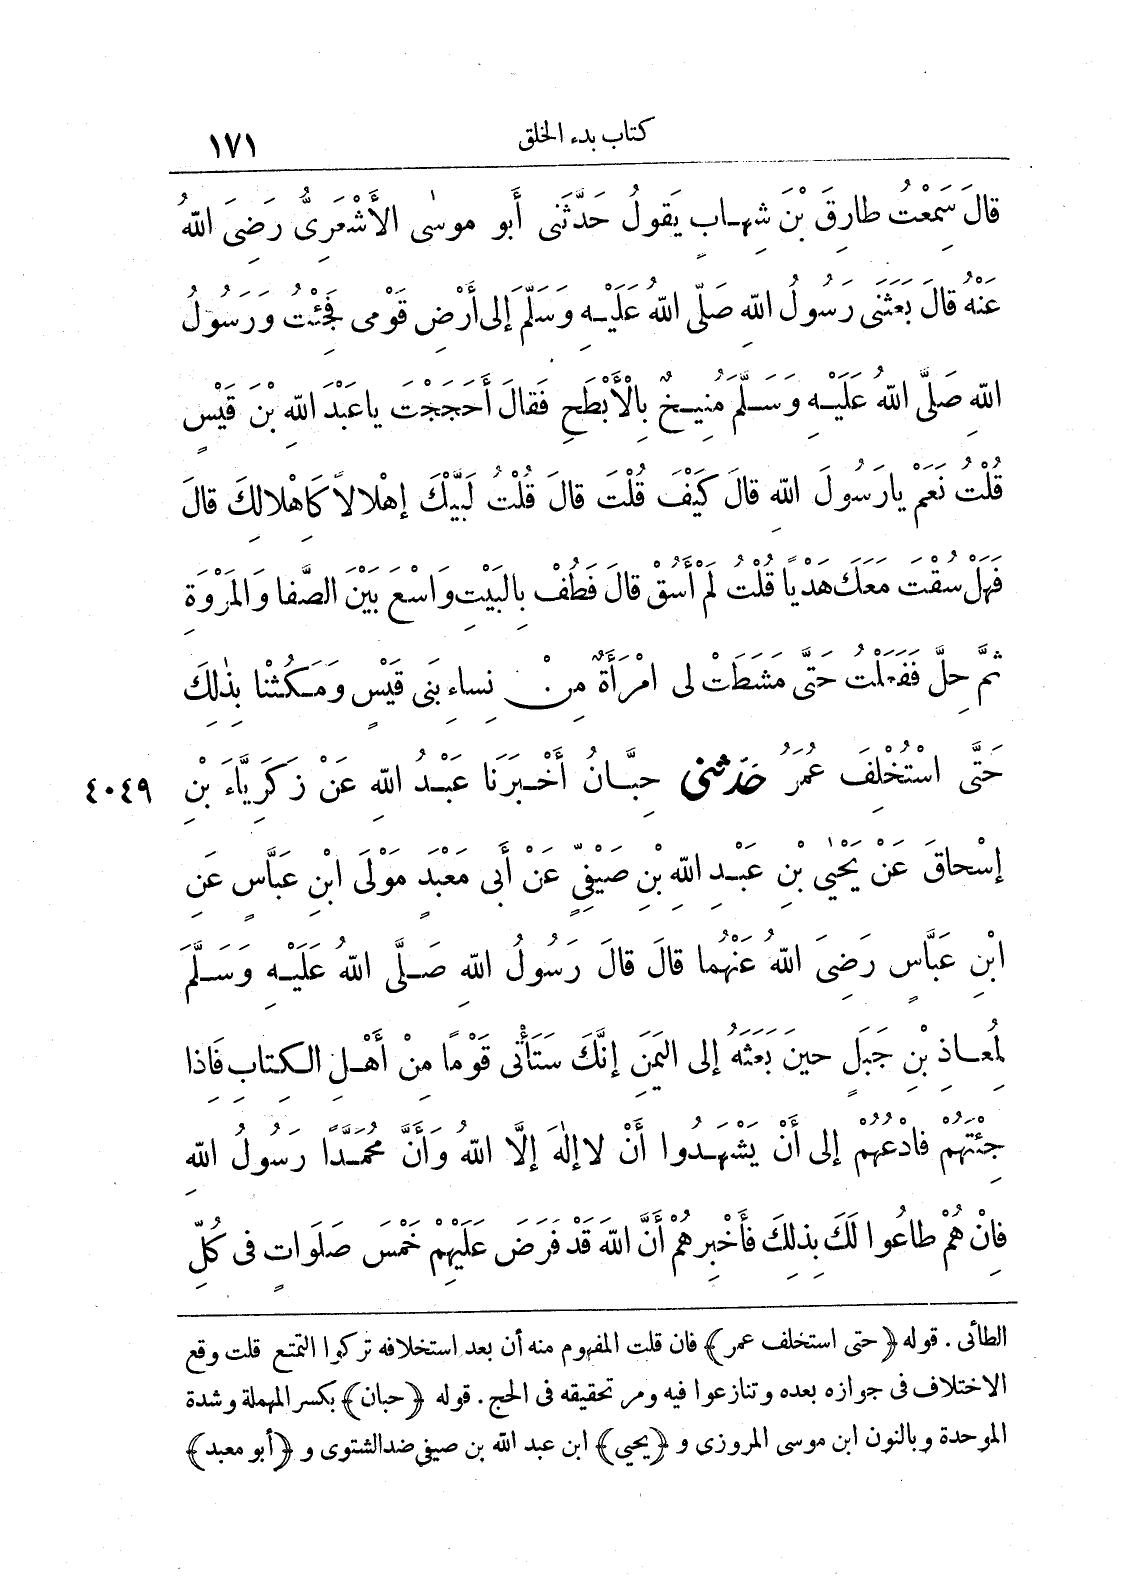 كتاب بدء الخلق ١٧١
قالَ سَمِعْتُ طارِقَ بْنَ شِهابٍ يَقولُ حَدَّثَنِى أَبو موسٰى الأَشْعَرِىُّ رَضِىَ اللهُ
عَنْهُ قالَ بَعَثَنِى رَسُولُ اللهِ صَلَّى اللهُ عَلَيْهِ وَسَلَّمَ إلى أَرْضِ قَوْمى فَجِئْتُ وَرَسُولُ
اللهِ صَلَّى اللهُ عَلَيْهِ وَسَلَّمَ مُنِيخٌ بِالْأَبْطَحِ فَقالَ أَحَجَجْتَ ياعَبْدَ اللهِ بْنَ قَيْسٍ
قُلْتُ نَعَمْ يارَسُولَ اللهِ قالَ كَيْفَ قُلْتَ قالَ قُلْتُ لَبَّيْكَ إهْلالاً كَاِهْلالِكَ قالَ
فَهَلْ سُقْتَ مَعَكَ هَدْيًا قُلْتُ لَمْ أَسُقْ قالَ فَطُفْ بِالبَيْتِ وَاسْعَ بَيْنَ الصَّفا وَالمَرْوَةِ
ثمَّ حِلَّ فَفَعَلْتُ حَتَّى مَشَطَتْ لى امْرَأَةٌ مِنْ نِساءِ بَنِى قَيْسٍ وَمَكُثْنا بِذٰلِكَ
حَتَّى اسْتُخْلِفَ عُمَرُ حَدَّثَنِى حِبَّانُ أَخْبَرَنَا عَبْدُ اللهِ عَنْ زَكَرِيَّاءَ بْنِ ٤٠٤٩
إسْحاقَ عَنْ يَحْيٰى بْنِ عَبْدِ اللهِ بْنِ صَيْفِىٍّ عَنْ أَبى مَعْبَدٍ مَوْلَى ابْنِ عَبَّاسٍ عَنِ
ابْنِ عَبَّاسٍ رَضِىَ اللهُ عَنْهُما قالَ قالَ رَسُولُ اللهِ صَلَّى اللهُ عَلَيْهِ وَسَلَّمَ
لِمُعاذِ بْنِ جَبَلٍ حينَ بَعَثَهُ إلى اليَمَنِ إنَّكَ سَتَأْتى قَوْمًا مِنْ أَهْلِ الكِتابِ فَاِذا
جِئْتَهُمْ فادْعُهُمْ إلى أَنْ يَشْهَدُوا أَنْ لا إلٰهَ إلَّا اللهُ وَأَنَّ مُحَمَّدًا رَسُولُ اللهِ
فاِنْ هُمْ طاعُوا لَكَ بِذلِكَ فَأَخْبِرهُمْ أَنَّ اللهَ قَدْ فَرَضَ عَلَيْهِمْ خَمْسَ صَلَوَاتٍ فى كُلِّ
الطائى . قوله ﴿حتى استخلف عمر﴾ فان قلت المفهوم منه أن بعد استخلافه تركوا التمتع قلت وقع
الاختلاف فى جوازه بعده وتنازعوا فيه ومر تحقيقه فى الحج . قوله ﴿حبان﴾ بكسر المهملة وشدة
الموحدة وبالنون ابن موسى المروزى و ﴿يحيى﴾ ابن عبد الله بن صيفى ضد الشتوى و ﴿أبو معبد﴾